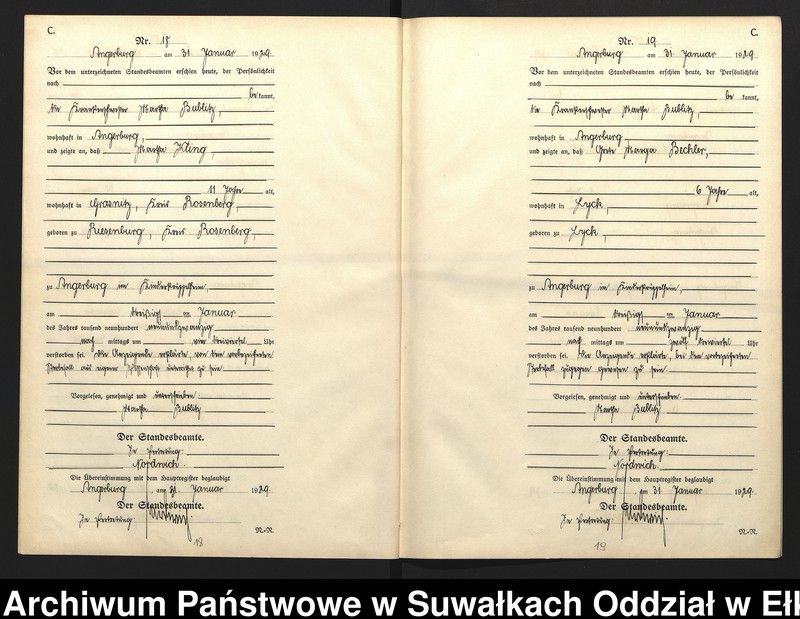 C.
Nr. 18
Angerburg am 31. Januar 1929.
Vor dem unterzeichneten Standesbeamten erschien heute, der Persönlichkeit
nach
be kannt,
die Krankenschwester Martha Bublitz,
wohnhaft in Angerburg,
und zeigte an, daß Martha Kling,
11 Jahre alt,
wohnhaft in Grasnitz, Kreis Rosenberg,
geboren zu Riesenburg, Kreis Rosenberg,
zu Angerburg im Kinderkrüppelheim,
am dreißigsten Januar
des Jahres tausend neunhundert neunundzwanzig
nach mittags um vier dreiviertel Uhr
verstorben sei. Die Anzeigende erklärte, von dem vorbezeichneten
Sterbefall aus eigener Wissenschaft unterrichtet zu sein
Vorgelesen, genehmigt und unterschrieben
Martha Bublitz
Der Standesbeamte.
In Vertretung:
Nordwich.
Die Übereinstimmung mit dem Hauptregister beglaubigt
Angerburg am 31. Januar 1929.
Der Standesbeamte.
In Vertretung:
N.-R.
18
C.
Nr. 19
Angerburg am 31. Januar 1929.
Vor dem unterzeichneten Standesbeamten erschien heute, der Persönlichkeit
nach
be kannt,
die Krankenschwester Martha Bublitz,
wohnhaft in Angerburg
und zeigte an, daß Grete Marga Bechler,
6 Jahre alt,
wohnhaft in Lyck,
geboren zu Lyck,
zu Angerburg im Kinderkrüppelheim,
am dreißigsten Januar
des Jahres tausend neunhundert neunundzwanzig
nach mittags um zwölf dreiviertel Uhr
verstorben sei. Die Anzeigende erklärte, bei dem vorbezeichneten
Sterbefall zugegen gewesen zu sein
Vorgelesen, genehmigt und unterschrieben
Martha Bublitz
Der Standesbeamte.
In Vertretung:
Nordwich.
Die Übereinstimmung mit dem Hauptregister beglaubigt
Angerburg am 31. Januar 1929.
Der Standesbeamte.
In Vertretung:
N.-R.
19
Archiwum Państwowe w Suwałkach Oddział w Ełk